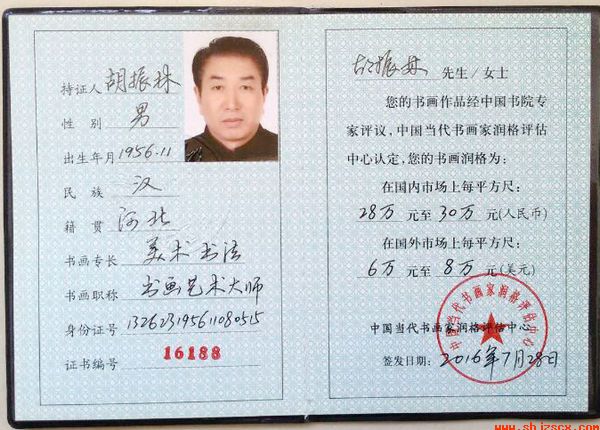 持证人 胡振林
性 别 男
出生年月 1956.11
民 族 汉
籍 贯 河北
书画专长 美术书法
书画职称 书画艺术大师
身份证号 132623195611080515
证书编号 16188
胡振林 先生/女士
您的书画作品经中国书院专
家评议，中国当代书画家润格评估
中心认定，您的书画润格为：
在国内市场上每平方尺：
28万 元至 30万 元(人民币)
在国外市场上每平方尺：
6万 元至 8万 元(美元)
中国当代书画家润格评估中心
中国当代书画家润格评估中心
签发日期：2016年7月28日
www.shjzscx.com